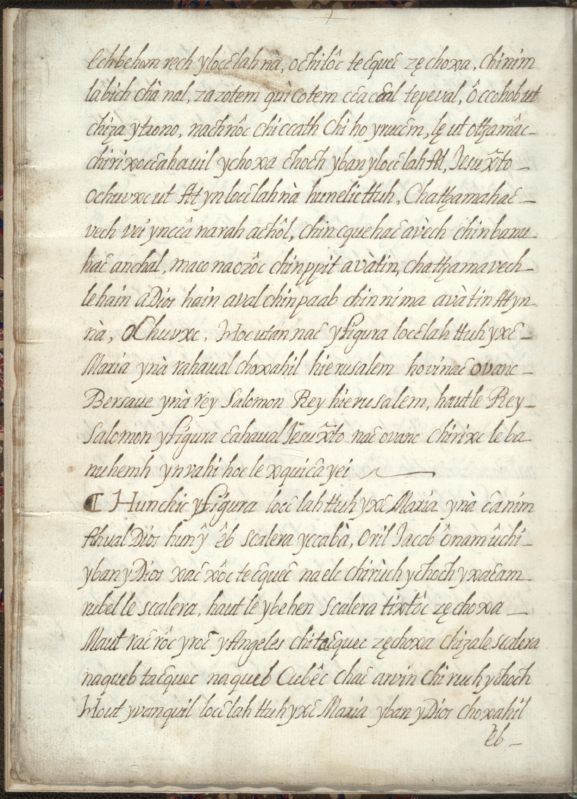 Echbehom rech ylocɛlah nà, ochilôc tecquec zȩchoxa, chinim
labich chà nal, zazotem quìcotem cɛacɛal tepeval, ôccohob ut
chiza ytzono, nachrôc chiccath chi ho yrucɛm, lȩ ut otzamâc_
chirixocɛahauil ychoxa choch ybanylocɛlah At, Jesuxp̃to _
ochuvxc ut At ynlocɛlah nà hunelic Atuh, Chatzamahac_
vech vei yncɛà narah achôl, chincquehac avèch chinbanu_
hac anchal, maco naczôc chinppit avàtin, chatzamavech_
lehain a Dios hain aval chinpaab chin nima avàtin Atyn_
nà, Chuvxc. Wocutan nac yfigura locɛlah Atuh yxc̃
Maria ynà rahaual choxahil hierusalem hovinac ovanc_
Bersave ynà rey Salomon Rey hierusalem, haut le Rey_
Salomon yfigura cahaual Jesuxp̃to nac ovanc chirixc leba_
nuhemh ynvahi hoc le xquicàyei
¶ Hunchic yfigura locɛ lah Atuh yxc̃ Maria ynà canim
Ahual Dios hun ŷ êb scalera yccabà, Oril Jacob ônamûchi_
yban y Dios xac xôc tecquec naelc chirùch ychoch yxacam_
rubel le scalera, haut le ybehen scalera tixtôc zȩchoxa _
Maut racrôc yroc̃ yAngeles chitacquec zȩchoxa chizale scalera
naqueb tacquec naqueb Cubêc chac arvin chi ruch ychoch
Wout yvanquil locɛ lah Atuh yxc̃ Maria yban y Dios choxahil
êb _